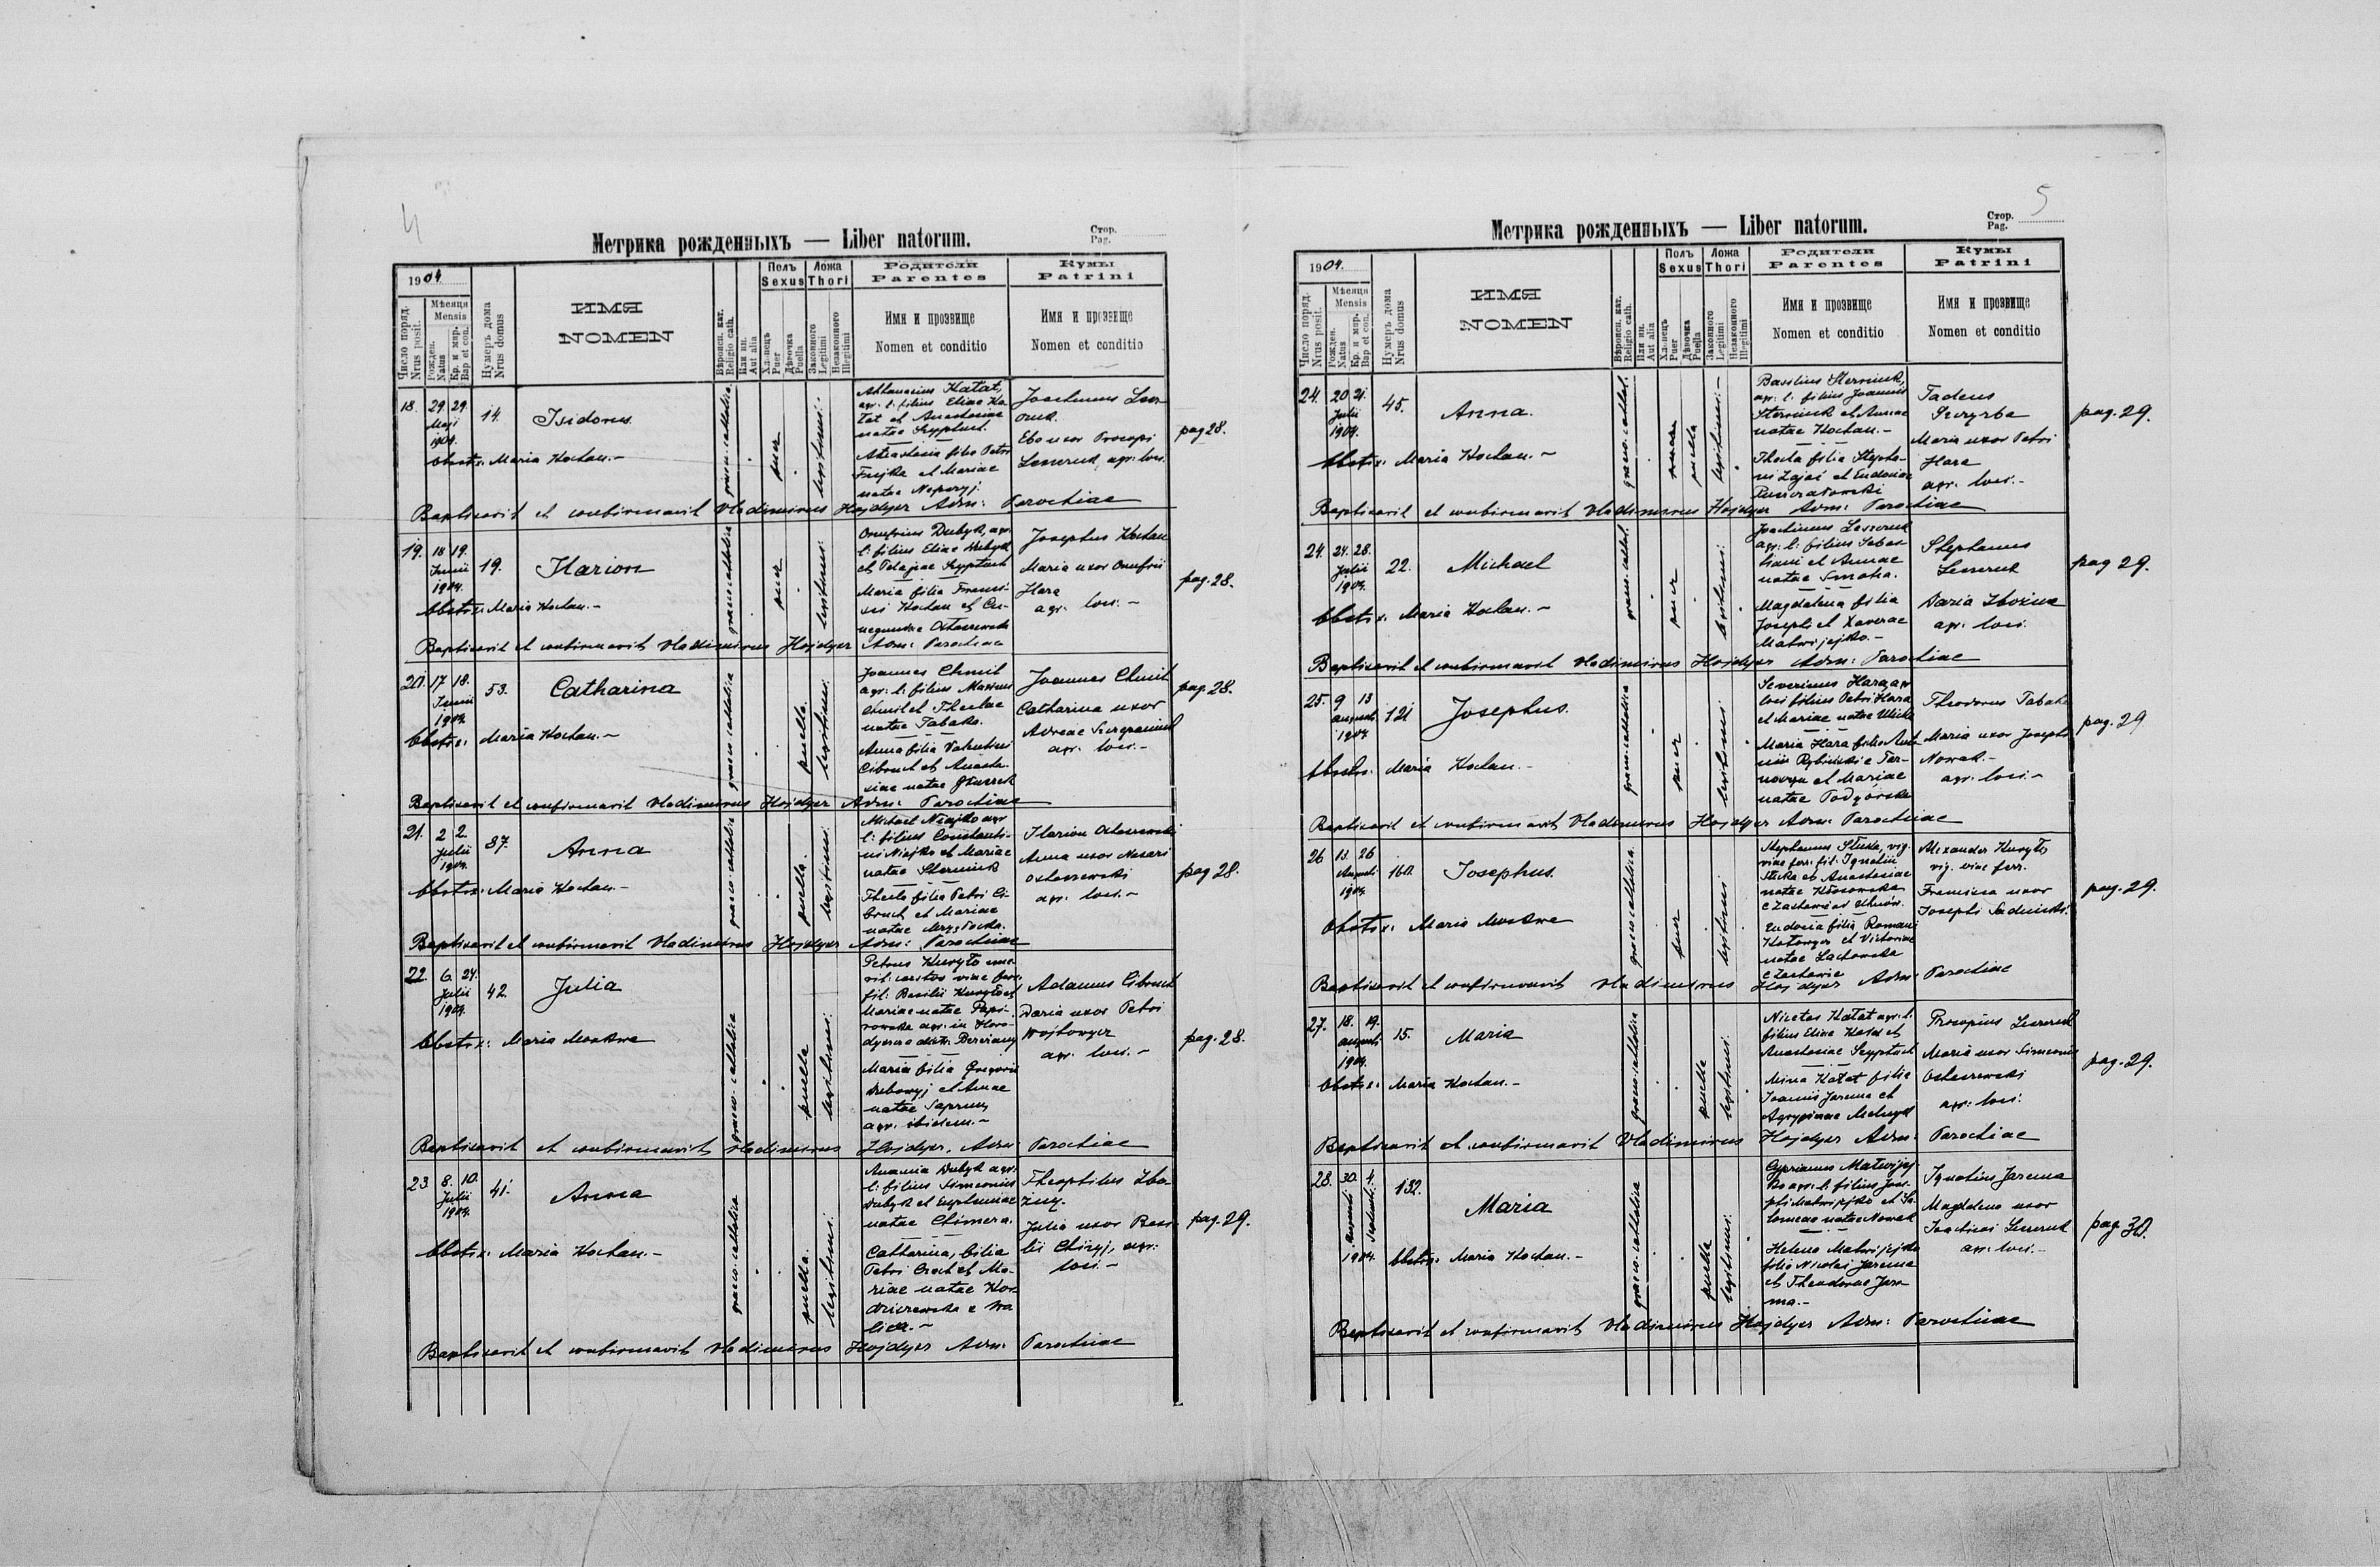 4
Метрика рожденныхъ — Liber natorum.
Стор.
Pag.
1904.
Число поряд.
Nrus posit.
Мѣсяця
Mensis
Рожден.
Natus
Кр. и мѵр.
Bap et con.
Нумеръ дома
Nrus domus
ИМЯ
NOMEN
Вѣроисп. кат.
Religio cath.
Или ин.
Aut alia
Полъ
Sexus
Хлопецъ
Puer
Дѣвочка
Puella
Ложа
Thori
Законного
Legitimi
Незаконного
Illegitimi
Родители
Parentes
Имя и прозвище
Nomen et conditio
Кумы
Patrini
Имя и прозвище
Nomen et conditio
18. 29. 29. 14. Isidorus
Maji
1904.
Obstx: Maria Kochan.-
graeco-catholica
puer
legitimi.
Athanasius Hatat,
agr. l. filius Eliae Ha
tat et Anastasiae
natae
Anastasia filia Petri
et Mariae
natae
Joachimus
uxor Procopi
agr. loci.
pag 28.
Baptisavit et confirmavit Vladimirus Hojdyer Adm: Parochiae
19. 18 19. 19. Ilarion
Junii
1904.
Obstx: Maria Kochan.-
graeco-catholica
puer
legitimi.
Onufrius Dubyk, agr.
l: filius Eliae Dubyk
et Pelagiae
Maria filia Franci-
sci Kochan et Cu-
negundae Ostaszewska
Josephus Kochan
Maria uxor Onufrii
Hara
agr. loci.-
pag. 28.
Baptisavit et confirmavit Vladimirus Hojdyer Adm: Parochiae
20. 17 18. 53. Catharina
Junii
1904.
Obstx: Maria Kochan.-
graeco-catholica
puella.
legitimi.
Joannes Chmil
agr: l: filius Maximi
Chmil et Theclae
natae Tabaka.
Anna filia Valentini
Cibruch et Anasta-
siae natae
Joannes Chmil
Catharina uxor
Andreae
agr. loci.-
pag 28.
Baptisavit et confirmavit Vladimirus Hojdyer Adm: Parochiae
21. 2 2 87. Anna
Julii
1904.
Obstx: Maria Kochan.-
graeco-catholica
puella.
legitimi.
Michael Niajko agr
l: filius Constanti-
ni Niajko et Mariae
natae Sterniuk
Thecla filia Petri Ci
bruch et Mariae
natae
Ilarion Ostaszewski
Anna uxor Nasari
Ostaszewski
agr. loci.-
pag 28.
Baptisavit et confirmavit Vladimirus Hojdyer Adm: Parochiae
22. 6. 24. 42. Julia
Julii
1904.
Obstx: Maria Moskwa
graeco-catholica
puella
legitimi.
Petrus Kuryło eme-
rit. custos viae ferr.
fil: Basilii Kuryło et
Mariae natae
agr. in Horo-
Maria filia Gregorii
et Annae
natae
agr. ibidem.-
Adamus Cibruch
Daria uxor Petri
Wojtowycz
agr. loci.-
pag. 28.
Baptisavit et confirmavit Vladimirus Hojdyer. Adm: Parochiae
23 8. 10. 41. Anna
Julii
1904.
Obstx: Maria Kochan.-
graeco-catholica
puella.
legitimi.
Anania Dubyk agr.
l: filius Simeonis
Dubyk et Euphemiae
natae Chimera.
Catharina, filia
Petri et Ma-
riae natae
Theophilus Zbo
zny.
Julia uxor Basi
lii agr:
loci.-
pag. 29.
Baptisavit et confirmavit Vladimirus Hojdyer Adm: Parochiae
Метрика рожденныхъ — Liber natorum.
Стор.
Pag.
5
1904.
Число поряд.
Nrus posit.
Мѣсяця
Mensis
Рожден.
Natus
Кр. и мѵр.
Bap et con.
Нумеръ дома
Nrus domus
ИМЯ
NOMEN
Вѣроисп. кат.
Religio cath.
Или ин.
Aut alia
Полъ
Sexus
Хлопецъ
Puer
Дѣвочка
Puella
Ложа
Thori
Законного
Legitimi
Незаконного
Illegitimi
Родители
Parentes
Имя и прозвище
Nomen et conditio
Кумы
Patrini
Имя и прозвище
Nomen et conditio
24. 20 21. 45. Anna.
Julii
1904.
Obstx: Maria Kochan.-
graeco-cathol.
puella
legitimi.-
Basilius Sterniuk,
agr. l. filius Joannis
Sterniuk et Annae
natae Kochan.-
Thecla filia Stepha-
ni Zając et Eudociae
Tadeus
Szczyrba
Maria uxor Petri
Hara
agr. loci.-
pag. 29.
Baptisavit et confirmavit Vladimirus Hojdyer Adm: Parochiae
24. 24. 28. 22. Michael
Julii
1904.
Obstx: Maria Kochan.-
graeco-cathol.
puer
legitimi.
Joachimus
agr: l: filius Sebas
tiani et Annae
natae Smoka.
Magdalena filia
Josephi et Xaverae
Matwijejko.-
Stephanus
Daria Zbożna
agr. loci.
pag 29.
Baptisavit et confirmavit Vladimirus Hojdyer Adm: Parochiae
25. 9 13 121 Josephus.
Augusti
1904.
Obstx: Maria Kochan.-
graeco-catholica
puer
legitimi.
Severinus Hara agr
loci filius Petri Hara
et Mariae natae
Maria Hara filia Anto
nii Rybinski e Tar-
nawa et Mariae
natae Podgórska
Theodorus Tabaka
Maria uxor Josephi
Nowak.-
agr. loci.-
pag. 29
Baptisavit et confirmavit Vladimirus Hojdyer Adm: Parochiae
26 13. 26 160. Josephus.
Augusti
1904.
Obstx: Maria Moskwa
graeco-catholica.
puer
legitimi
Stephanus vig.
viae ferr. fil: Ignatii
et Anastasiae
natae
Eudocia filia Romani
et Victoriae
natae
Alexander Kuryło
vig. viae ferr.
Francisca uxor
Josephi
pag. 29.
Baptisavit et confirmavit Vladimirus Hojdyer Adm: Parochiae
27. 18. 19. 15. Maria
Augusti
1904.
Obstx: Maria Kochan.-
graeco-catholica
puella
legitimi.
Nicetas Hatat agr. l.
filius Eliae Hatat et
Anastasiae
Mina Hatat filia
Joannis Jarema et
Agrypinae
Procopius
Maria uxor Simeonis
Ostaszewski
agr: loci.
pag. 29.
Baptisavit et confirmavit Vladimirus Hojdyer Adm: Parochiae
28. 30. 4. 132. Maria
Augusti Septemb.
1904. Obstx: Maria Kochan.-
graeco-catholica
puella
legitimi.
Cyprianus Matwijej-
ko agr. l. filius Jose-
phi Matwijejko et Sa-
lomeae natae Nowak
Helena Matwijejko
filia Nicolai Jarema
et Theodorae Jare
ma.-
Ignatius Jarema
Magdalena uxor
Joachimi
agr. loci.-
pag. 30.
Baptisavit et confirmavit Vladimirus Hojdyer Adm: Parochiae